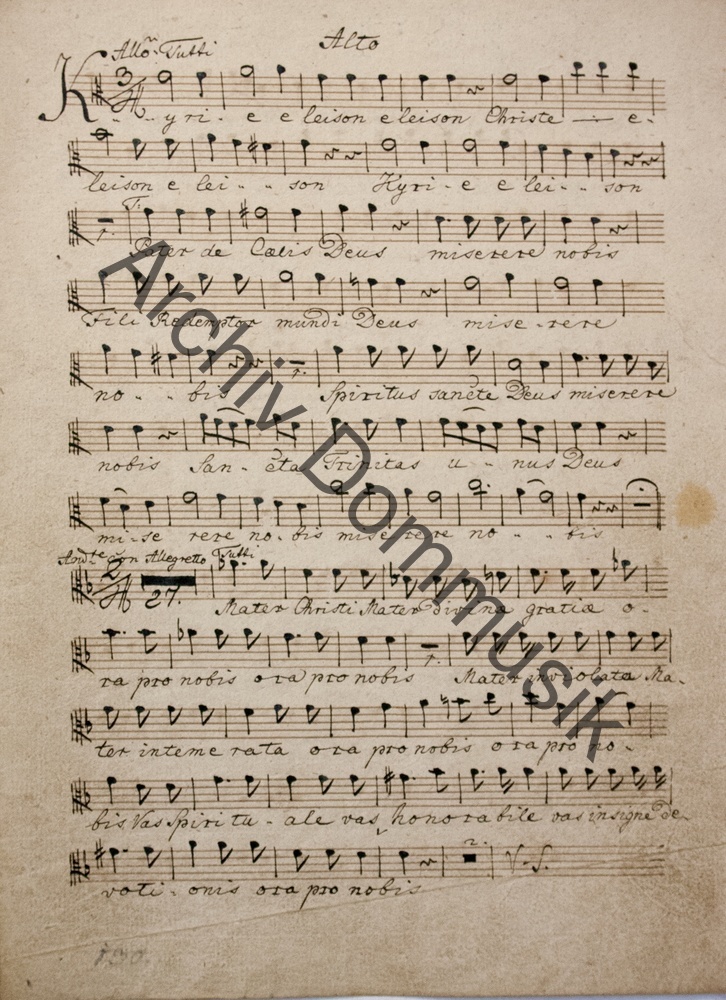 Alto
Allo. Tutti
3/4
Ky ri - e e leison e leison Christe — e-
leison e lei - - son Kyri - e e lei - - son
T:
1.
Pater de Cœlis Deus miserere nobis
Fili Redemptor mundi Deus mise - rere
1.
no - - bis Spiritus sancte Deus miserere
nobis San - cta Trinitas u - nus Deus
mi - se rere no - bis mise rere no - - bis
Andte con Allegretto Tutti
2/4
27.
Mater Christi Mater divinæ gratiæ o-
1.
ra pro nobis ora pro nobis Mater inviolata Ma-
ter inteme rata ora pro nobis ora pro no-
bis Vas Spiritu - ale vas honorabile vas insigne de
2.
V.S.
voti - onis ora pro nobis
130.
Archiv Dommusik